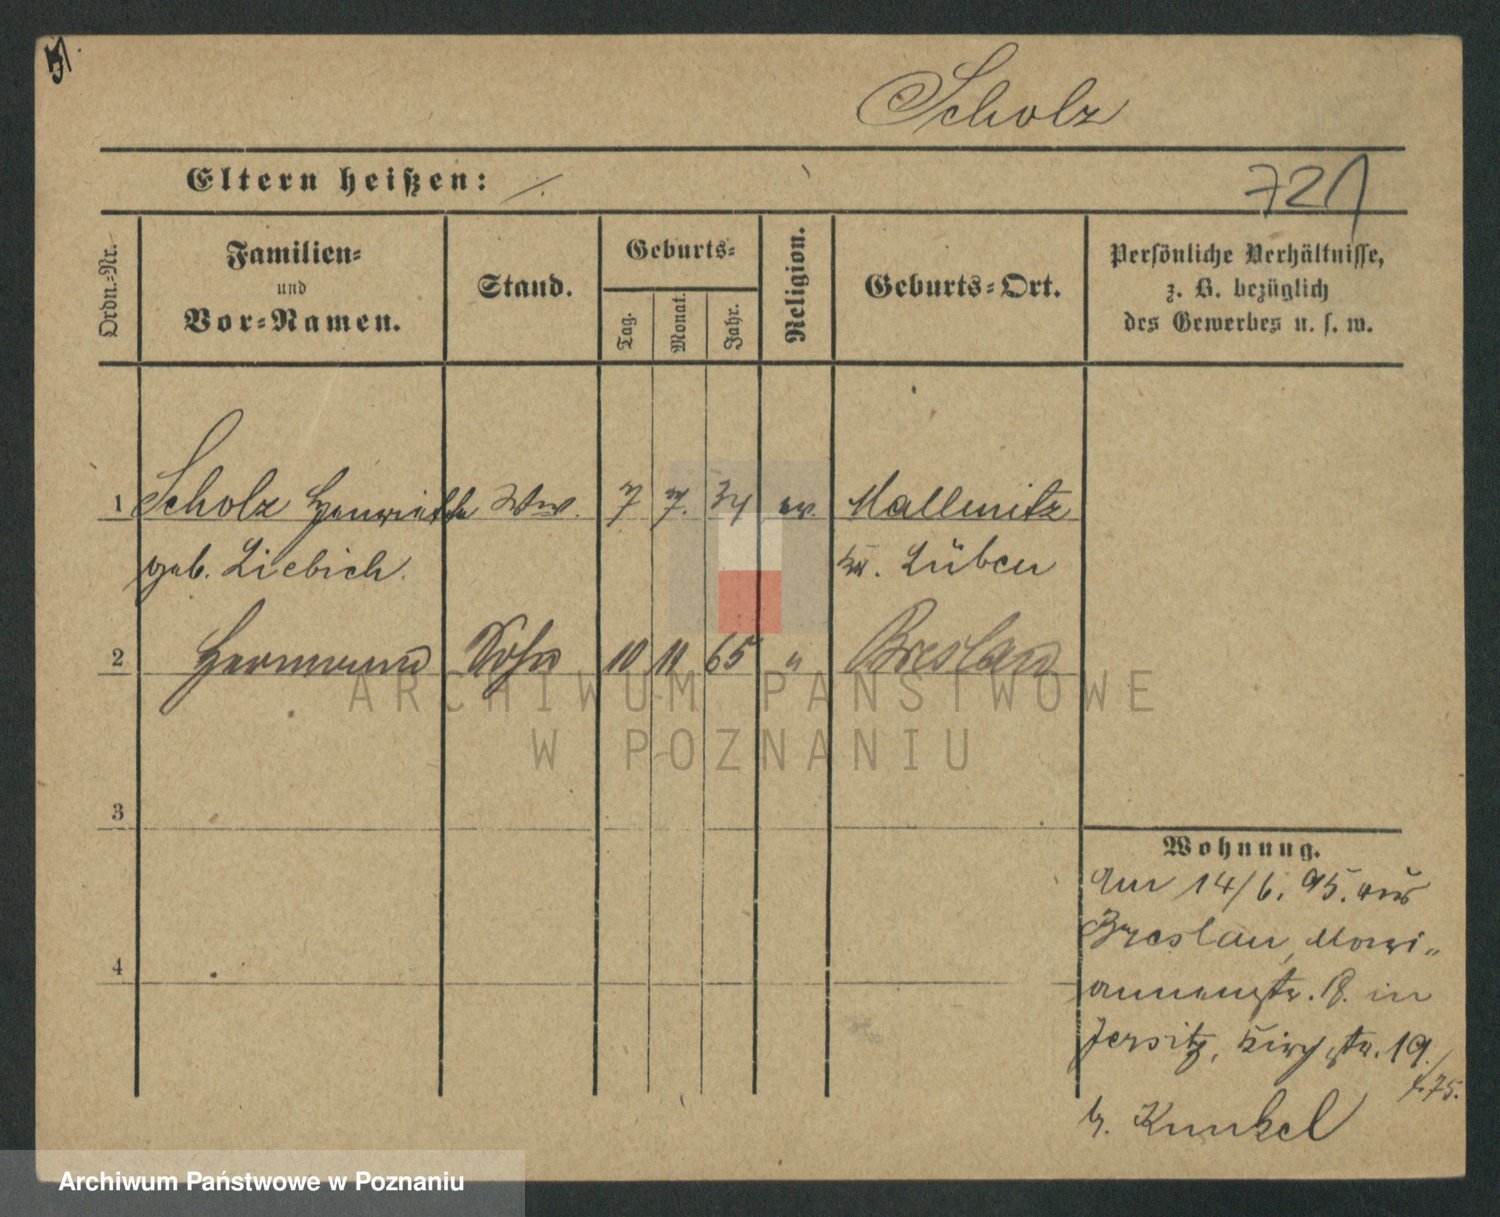 Scholz
Eltern heißen: ./.
721
Ordn.-Nr.
Familien-
und
Vor-Namen.
Stand.
Geburts-
Tag.
Monat.
Jahr.
Religion.
Geburts-Ort.
Persönliche Verhältnisse,
z. B. bezüglich
des Gewerbes u. s. w.
1 Scholz Henriette Ww. 7 7. 34 ev. Mallmitz
geb. Liebich. Kr. Lüben
2 Hermann Sohn 10 11 65 " Breslau
3
4
Wohnung.
Am 14/6. 95. aus
Breslau, Mari-
annenstr. in
Jersitz, Kirchstr. 19.
b. Kunkel
ARCHIWUM PAŃSTWOWE
W POZNANIU
Archiwum Państwowe w Poznaniu